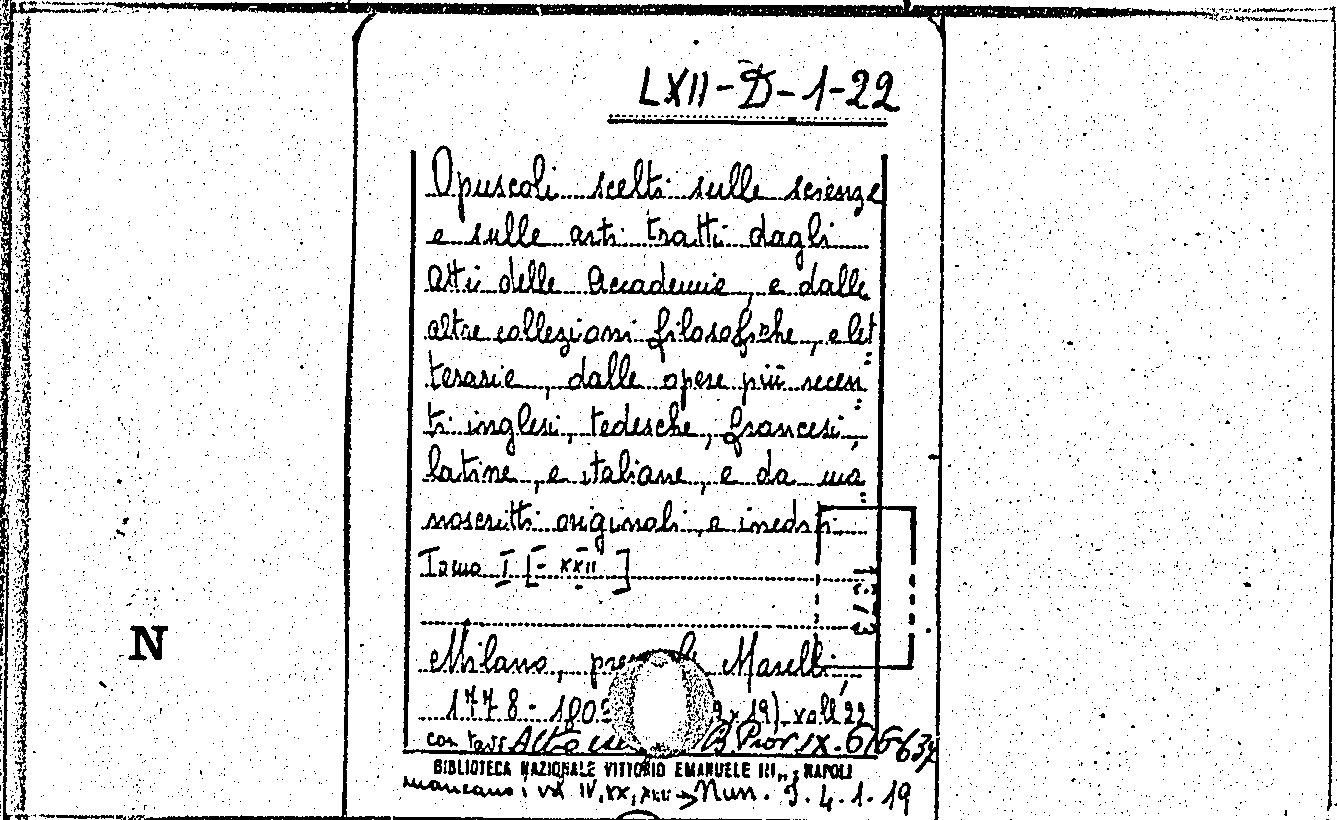 LXII-D-1-22
Opuscoli scelti sulle scienze
e sulle arti tratti dagli
atti delle Accademie, e dalle
altre collezioni filosofiche, e let
terarie, dalle opere più recen
ti inglesi, tedesche, francesi,
latine, e italiane, e da ma
noscritti originali, e inediti.
Tomo I [- XXII]
N
Milano, Marelli,
1778 - 19) voll. 22
con tav.
BIBLIOTECA NAZIONALE VITTORIO EMANUELE III - NAPOLI
mancano i vol IV, XX, XXII → Nun. 4.1.19